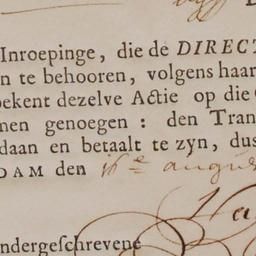 Inroepinge, die de DIRECT
n te behooren, volgens haar
bekent dezelve Actie op die
nen genoegen: den Tran
daan en betaalt te zyn, dus
DAM den 16e augus
ndergeſchrevene